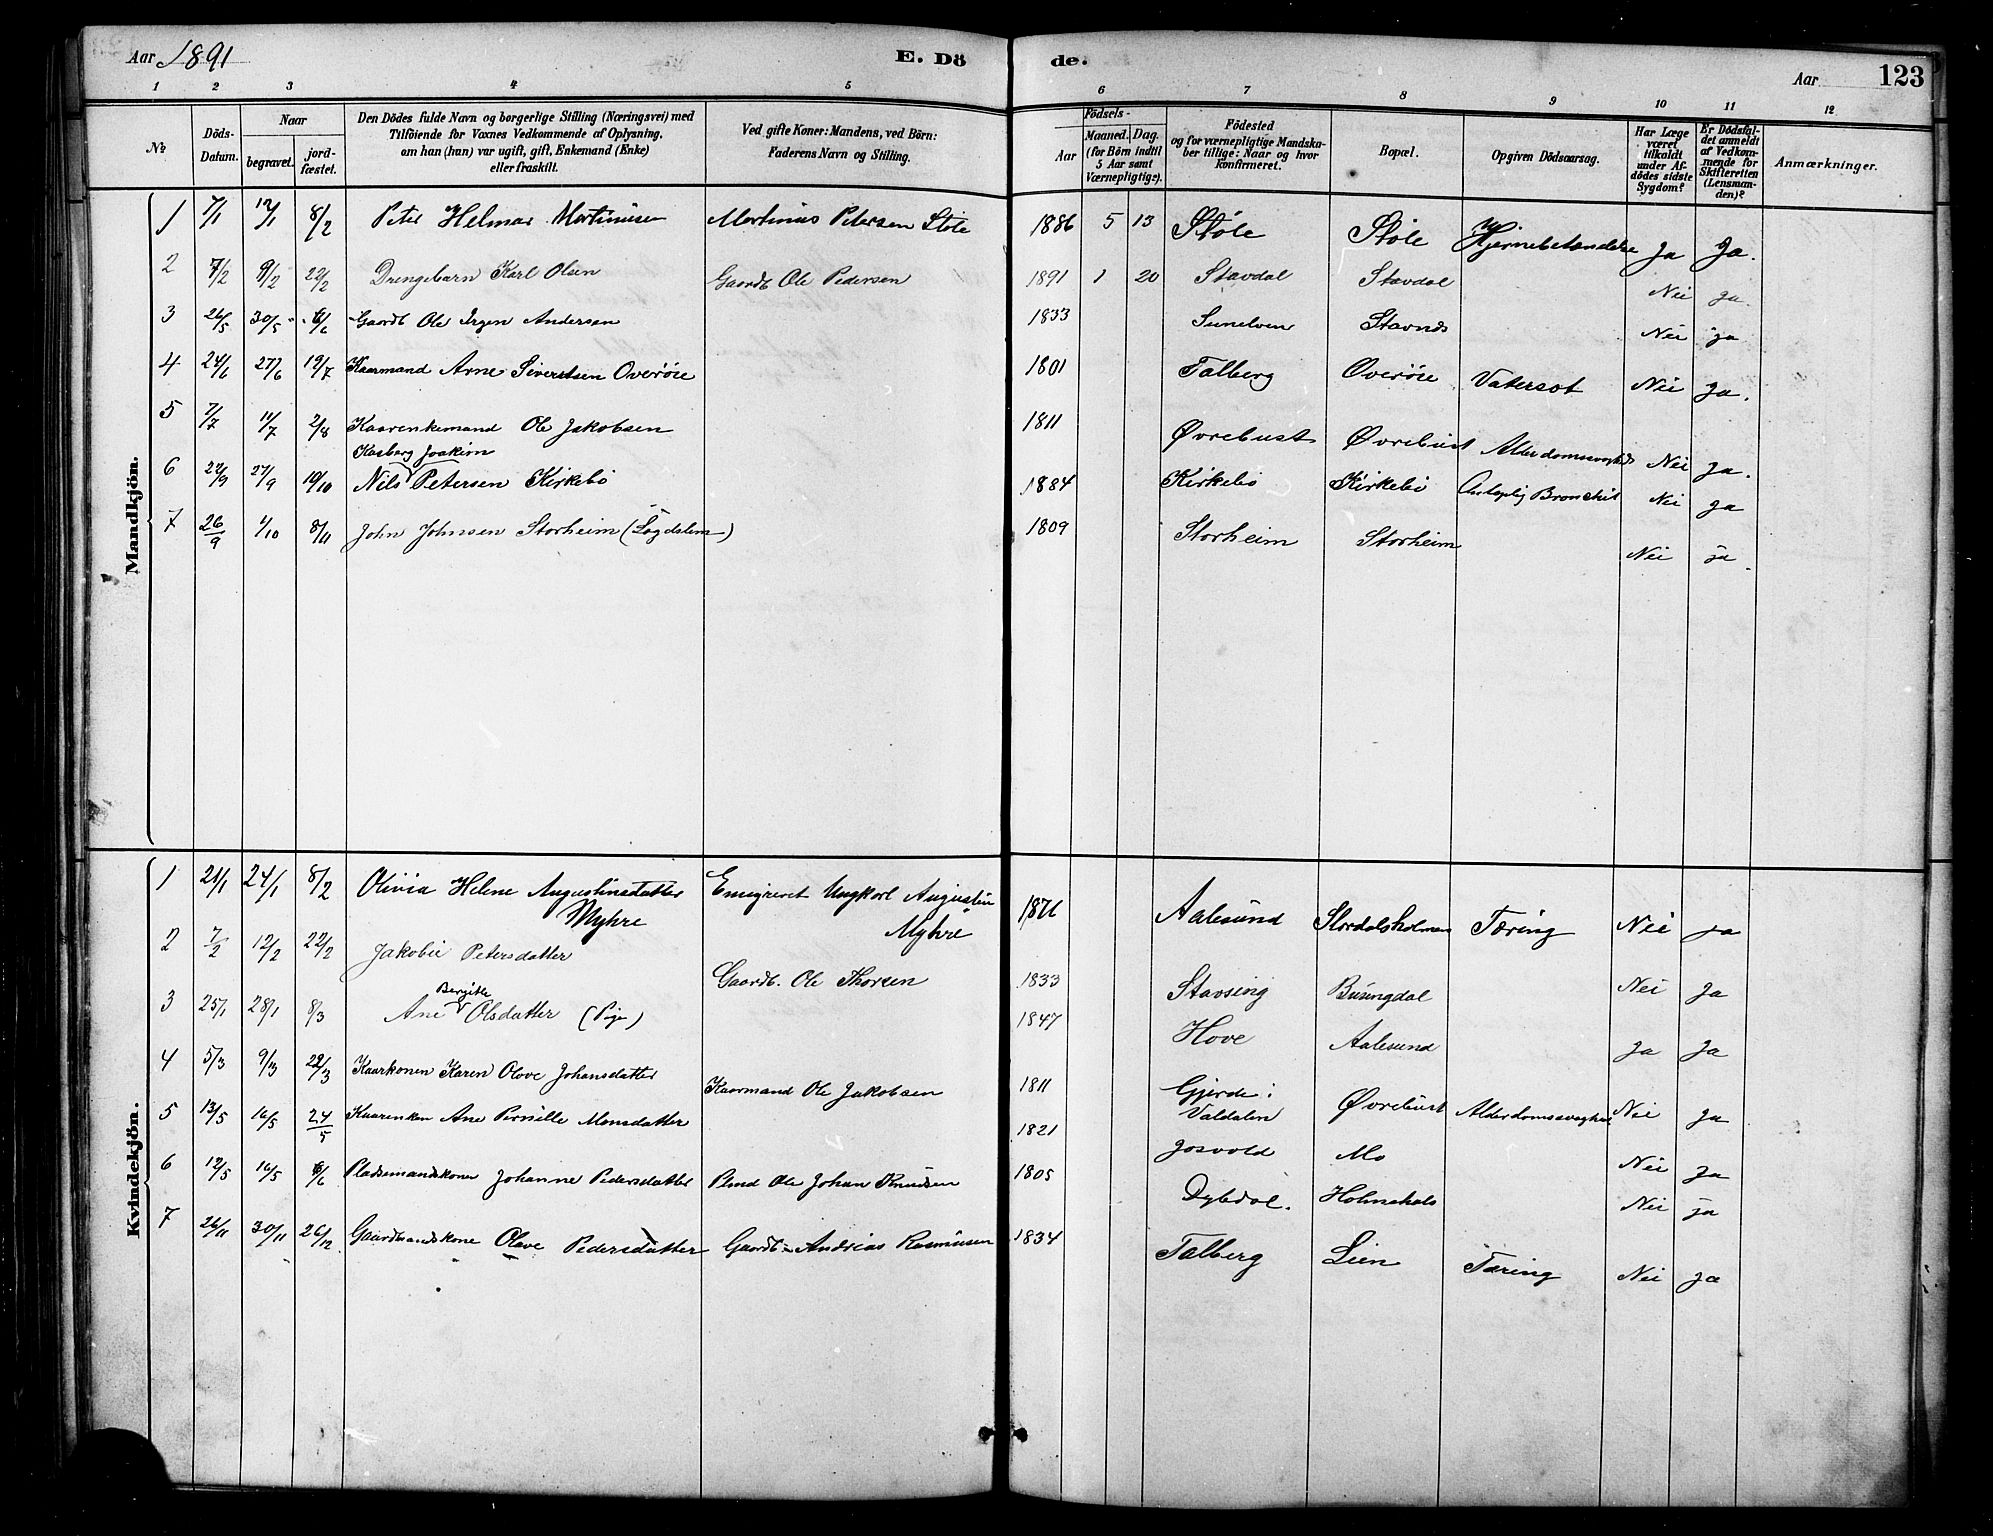 Aar 1891 E. Döde. Aar 123
1 2 3 4 5 6 7 8 9 10 11 12
№
Döds-Datum.
Naar
begravet.
jord-fæstet.
Den Dödes fulde Navn og borgerlige Stilling (Næringsvei) med
Tilföiende for Voxnes Vedkommende af Oplysning,
om han (hun) var ugift, gift, Enkemand (Enke)
eller fraskilt.
Ved gifte Koner: Mandens, ved Börn:
Faderens Navn og Stilling.
Födsels-
Aar
Maaned. Dag.
(for Börn indtil
5 Aar samt
Værnepligtige).
Födested
og for værnepligtige Mandska-
ber tillige: Naar og hvor
konfirmeret.
Bopæl.
Opgiven Dödsaarsag.
Har Læge
været
tilkaldt
under Af-
dödes sidste
Sygdom?
Er Dödsfal-
det anmeldt
af Vedkom-
mende for
Skifteretten
(Lensman-
den)?
Anmærkninger.
Mandkjön.
1 7/1 12/1 8/2 Peter Helmar Martinusen Martinus Petersen Støle 1886 5 13 Støle Støle Hjernebetændelse Ja Ja.
2 7/2 9/2 22/2 Drengebarn Karl Olsen Gaardb. Ole Pedersen 1891 1 20 Stavdal Stavdal Nei ja.
3 26/5 30/5 6/6 Gaardb Ole Irgen Andersen 1833 Sunelven Stavnds Nei ja
4 24/6 27/6 19/7 Kaarmand Arne Sivertsen Overøie 1801 Talberg Overøie Vatersot Nei Ja.
5 7/7 11/7 2/8 Kaarenkemand Ole Jakobsen 1811 Øvrebust Øvrebust Alderdomssvaghed Nei Ja.
Kasberg Joakim
6 22/9 27/9 19/10 Nils Petersen Kirkebø 1884 Kirkebø Kirkebø Bronchit Nei Ja
7 26/9 1/10 8/11 John Johnsen Storheim (Løgdslem) 1809 Storheim Storheim Nei ja.
Kvindekjön.
1 21/1 24/1 8/2 Olivia Helene Augustinsdatter Emigreret Ungkarl Augustin 1876 Aalesund Stordalsholmen Tæring Nei ja
Myhre Myhre
2 7/2 12/2 22/2 Jakobie Petersdatter Gaardb. Ole Thorsen 1833 Stavseng Busengdal Nei Ja
Bergitte
3 25/1 28/1 8/3 Ane Olsdatter (Pige) 1847 Hove Aalesund Ja Ja
4 5/3 9/3 22/3 Kaarkonen Karen Olave Johansdatter Kaarmand Ole Jakobsen 1811 Gjerde i
Valdalen Øvrebust Alderdomssvaghed Nei Ja
5 13/5 16/5 24/5 Kaarenken Ane Pernille Monsdatter 1821 Josvold Mo Nei Ja
6 12/5 16/5 6/6 Pladsemandskonen Johanne Pedersdatter Plmd Ole Johan Knudsen 1805 Dybdal. Holmshols Nei ja
7 26/11 30/11 26/12 Gaardbrandskone Olave Pedersdatter Gaardb. Andreas Rasmusen 1834 Talberg Lien Tæring Nei ja